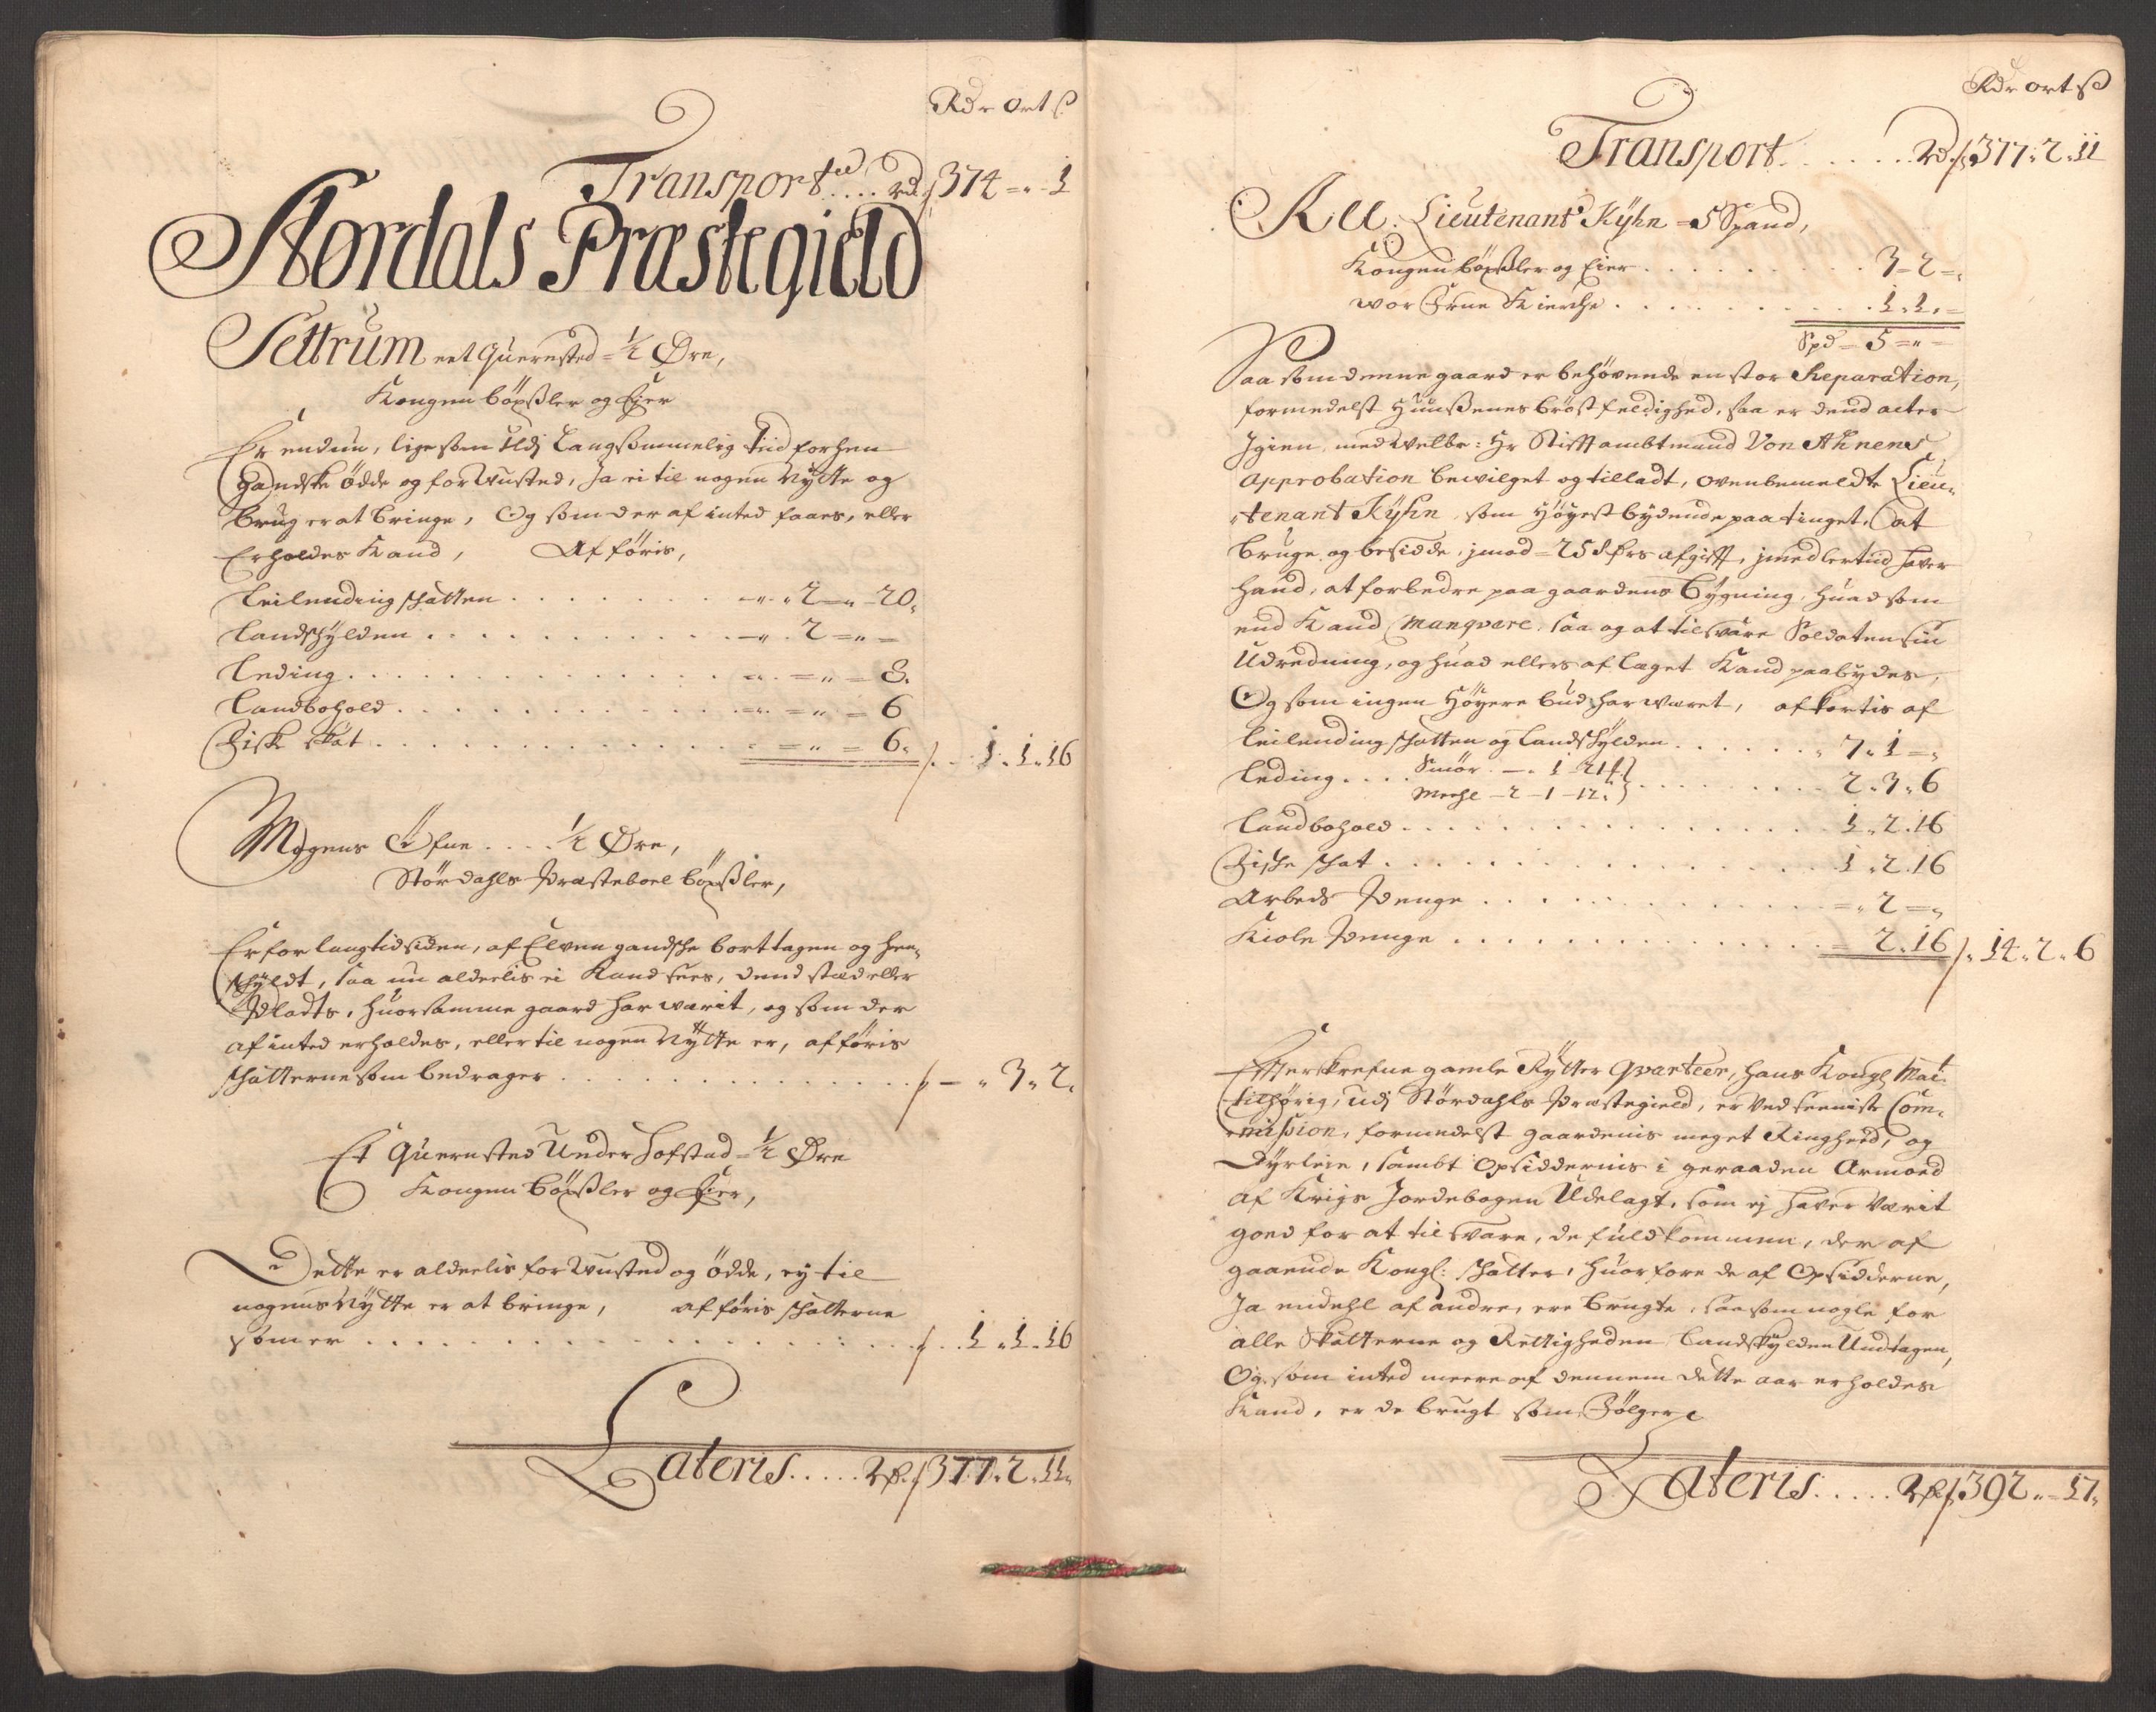 Rdr ort ß
Transport .... rd. 374 = „ - 1
Størdals Præstegield
Settrum eet Quernsted = ½ Øre,
Kongen böxßler og Ejer
Er endnu, lige som Udj Langsommelig tiid forhen
gandske ödde og for Wusted, Ja ei til nogen Nÿtte og
brug er at bringe, Og som der af inted faaes, eller
Erholdes Kand, Afføris,
Leilending schatten . . . . „ 2 „ 20.
Landschÿlden . . . . „ 2 = „ -
Leding . . . . = „ = 8.
Landbohold . . . . = „ = 6
Fiske skat . . . . = „ = 6. /. 1. 1. 16
Mogens Öfne .... ½ Øre,
Stördahls Præsteboel böxßler,
Er for lang tid siden, af Elven gandsche bort tagen og hen-
schÿldt, saa nu alderlis ei Kand sees, dend stæd eller
Pladts, huor samme gaard har værit, og som der
af inted erholdes, eller til nogen Nÿtte er, afføris
schatterne som bedrager . . . . /. - „ 3. 2.
Et Quernsted Under Hofstad = ½ Øre
Kongen böxßler og Ejer,
Dette er alderlis for Wusted og ödde, ej til
nogens Nÿtte er at bringe, afføris schatterne
som er . . . . /. 1. 1. 16
Lateris ..... Rd. 377. 2. 11.
Rdr ort ß
Transport ..... Rd. 377. 2. 11
Lieutenant Kÿhn = 5 Spand,
Kongen böxßler og Eier . . . . 3 = 2 = „
vor Frue Kierche . . . . 1. 1. =
Spd = 5 = „ =
Saa som denne gaard er behøvende en stor Reparation,
formedelst Huußenes bröstfeldighed, saa er dend atter
Igien, med Welbr: Hr Stifftambtmand Von Ahnens
Approbation bevilget og tilladt, ovenbemeldte Lieu-
tenant Kÿhn som Höyestbydende paa tinget, at
bruge og besidde, imod = 25 d Ørs afgifft, imedlertiid haver
hand, at forbedre paa gaardens bÿgning, huad som
end Kand Manqvere. saa og at tilsvare Soldaten sin
Udredning, og huad ellers af laget Kand paabÿdes,
Og som ingen Höyere bud har været, afkortis af
Leilending schatten og Landschÿlden . . . . 7. 1 = „
Leding .... Smör - „ 1 - 21 f.
Meehl - 2 - 1 - 12. . . . . 2. 3. 6
Landbohold . . . . 1. 2. 16
Fische schat . . . . 1. 2. 16
Arbeds Penge . . . . = „ 2 = „
Kiole Penge . . . . = 2. 16 /. 14. 2. 6
Effterskrefne gamle Rÿtter Qvarteer, hans Kongl Mai:
tilhörig, udj Stördahls Præstegield, er Ved seeniste Com-
mission, formedelst gaardenis meget Ringhed, og
Dÿrleie, sambt Opsiddernis i geraaden Armoed
af Krigs Jordebogen Udelagt, som ej haver Værit
goed for at til svare, de fuldkommen, der af
gaaende Kongl: schatter, huorfore de af Opsidderne,
Ja endehl af andre, ere brugte, saa som nogle for
alle Skatterne og Rettigheden Landskÿlden Undtagen,
Og som inted meere af dennem dette aar erholdes
Kand, er de brugt som Fölger
Lateris ..... Rd. 392. - 17.